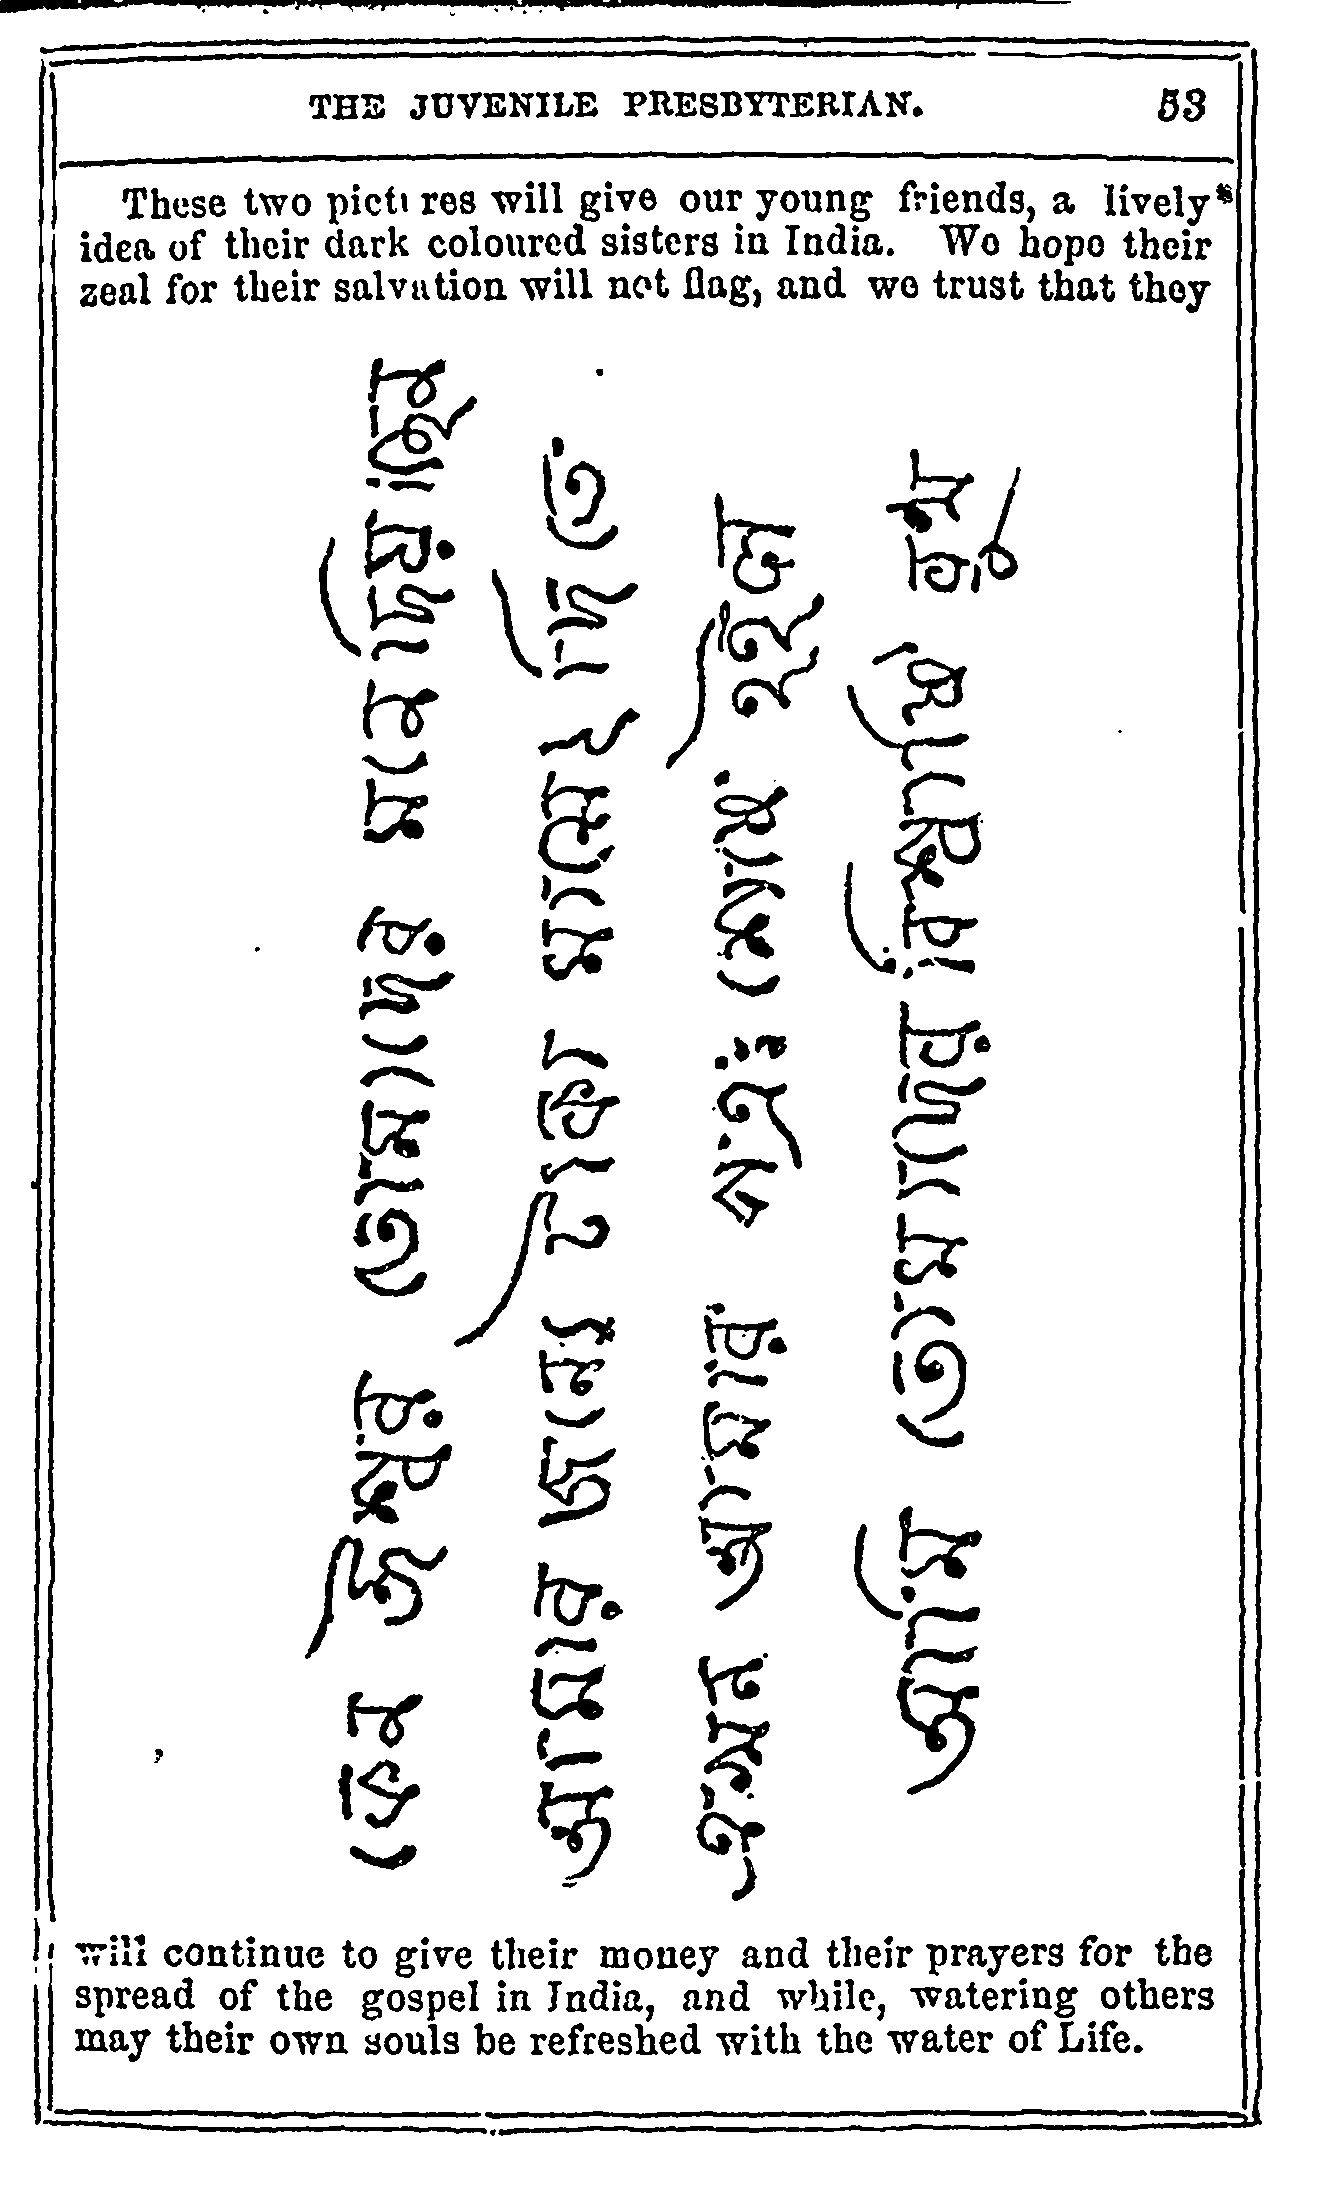 THE JUVENILE PRESBYTERIAN. 53
These two pictures will give our young friends, a lively
idea of their dark coloured sisters in India. We hope their
zeal for their salvation will not flag, and we trust that they
কেন ঈশ্বর তোমাদের মনে দিয়াছেন
আমার জন্যে টাকা মাসে২ দিতে
এমন আমার লেখা হইল
আমি তোমাদের বিশ্বাসি
will continue to give their money and their prayers for the
spread of the gospel in India, and while, watering others
may their own souls be refreshed with the water of Life.